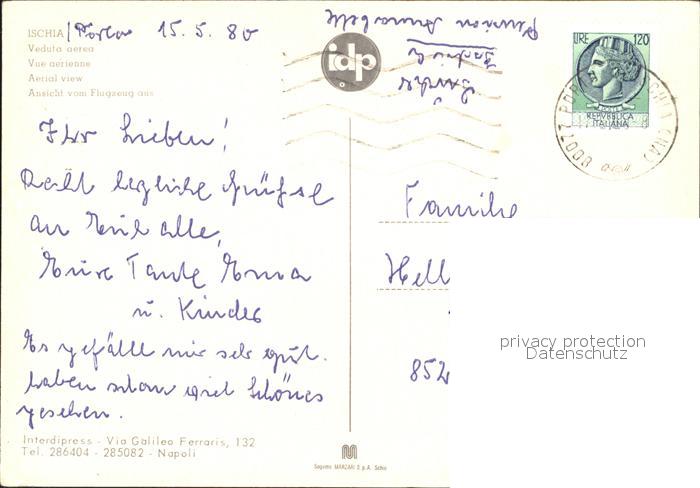 ISCHIA / Porto 15. 5. 80
Veduta aerea
Vue aérienne
Aerial view
Ansicht vom Flugzeug aus
Ihr Lieben!
Recht herzliche Grüße
an Euch alle,
Eure Tante Erna
u. Kinder
Es gefällt mir sehr gut.
haben schon viel Schönes
gesehen.
Interdipress - Via Galileo Ferraris, 132
Tel. 286404 - 285082 - Napoli
idp
Pension Annabelle
LIRE 120
REPVBBLICA
ITALIANA
Familie
Hell
852
privacy protection
Datenschutz
M
Sagoma MARZARI S.p.A. Schio